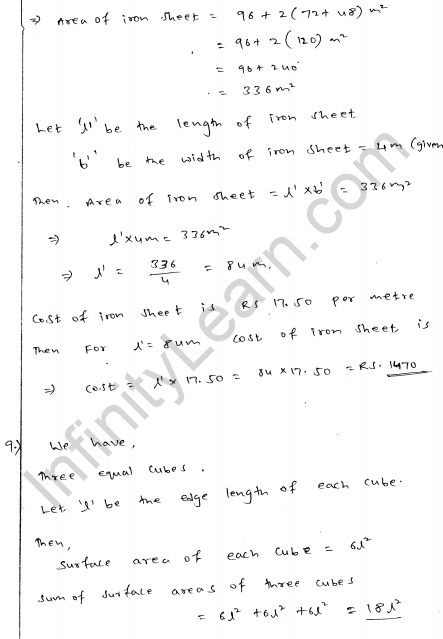 ⇒ Area of iron sheet = 96 + 2(72+48) m²
= 96+ 2(120) m²
= 96+ 240
= 336m²
Let 'l'' be the length of iron sheet
'b'' be the width of iron sheet = 4m (given
Then, Area of iron sheet = l' × b' = 336m²
⇒ l' × 4m = 336m²
⇒ l' = 336/4 = 84m.
Cost of iron sheet is RS 17.50 per metre
Then For l' = 84m cost of iron sheet is
⇒ cost = l' × 17.50 = 84 × 17.50 = RS. 1470
9.) We have,
Three equal cubes.
Let 'l' be the edge length of each cube.
Then,
Surface area of each cube = 6l²
sum of surface areas of three cubes
= 6l² + 6l² + 6l² = 18l²
InfinityLearn.com